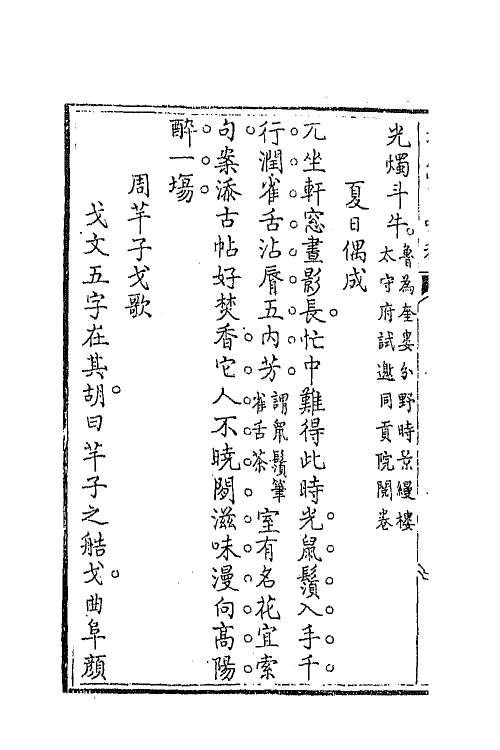 光燭斗牛魯為奎婁分野時景緩樓太守府試邀同貢院閱卷
夏日偶成
兀坐軒窓晝影長忙中難得此時光鼠鬚入手千
行潤雀舌沾脣五内芳謂鼠鬚筆雀舌茶室有名花宜索
句案添古帖好焚香它人不曉閒滋味漫向高陽
醉一塲
周芊子戈歌
戈文五字在其胡曰芊子之艁戈曲阜顏